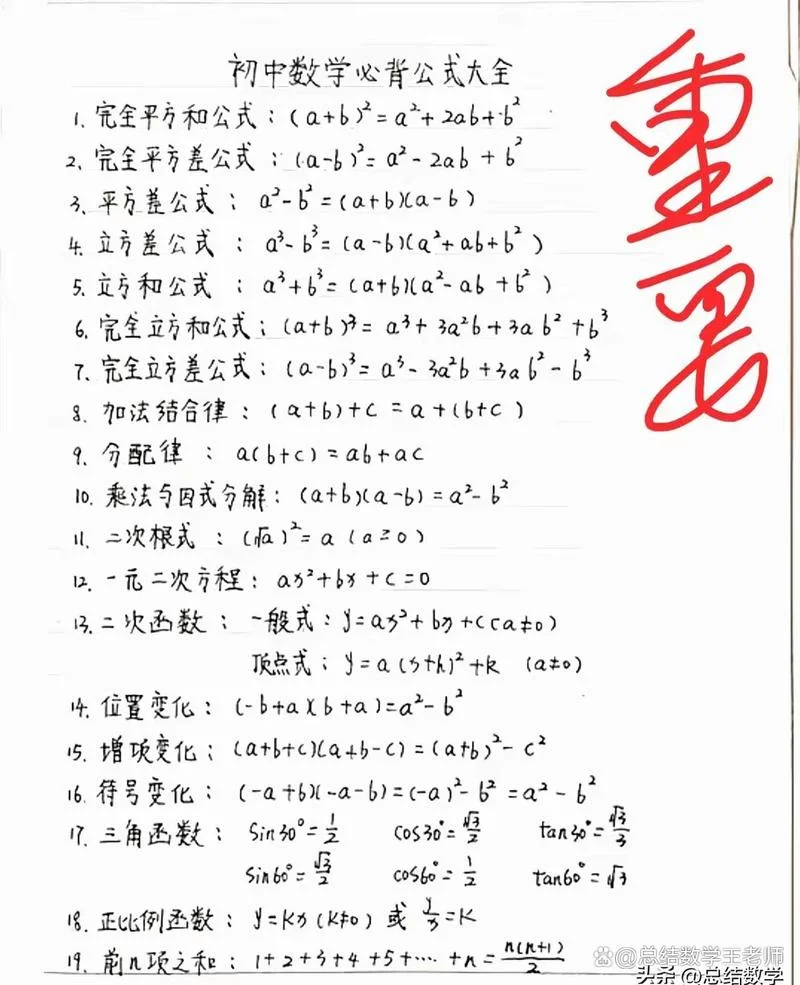 初中数学必背公式大全
重要
1. 完全平方和公式：(a+b)²=a²+2ab+b²
2. 完全平方差公式：(a-b)²=a²-2ab+b²
3. 平方差公式：a²-b²=(a+b)(a-b)
4. 立方差公式：a³-b³=(a-b)(a²+ab+b²)
5. 立方和公式：a³+b³=(a+b)(a²-ab+b²)
6. 完全立方和公式：(a+b)³=a³+3a²b+3ab²+b³
7. 完全立方差公式：(a-b)³=a³-3a²b+3ab²-b³
8. 加法结合律：(a+b)+c=a+(b+c)
9. 分配律：a(b+c)=ab+ac
10. 乘法与因式分解：(a+b)(a-b)=a²-b²
11. 二次根式：(√a)²=a(a≥0)
12. 一元二次方程：ax²+bx+c=0
13. 二次函数：一般式：y=ax²+bx+c(a≠0)
顶点式：y=a(x+h)²+k (a≠0)
14. 位置变化：(-b+a)(b+a)=a²-b²
15. 增项变化：(a+b+c)(a+b-c)=(a+b)²-c²
16. 符号变化：(-a+b)(-a-b)=(-a)²-b²=a²-b²
17. 三角函数：sin30°=1/2 cos30°=√3/2 tan30°=√3/3
sin60°=√3/2 cos60°=1/2 tan60°=√3
18. 正比例函数：y=kx(k≠0)或y/x=k
19. 前n项之和：1+2+3+4+5+⋯+n=n(n+1)/2
@总结数学王老师
头条 @总结数学